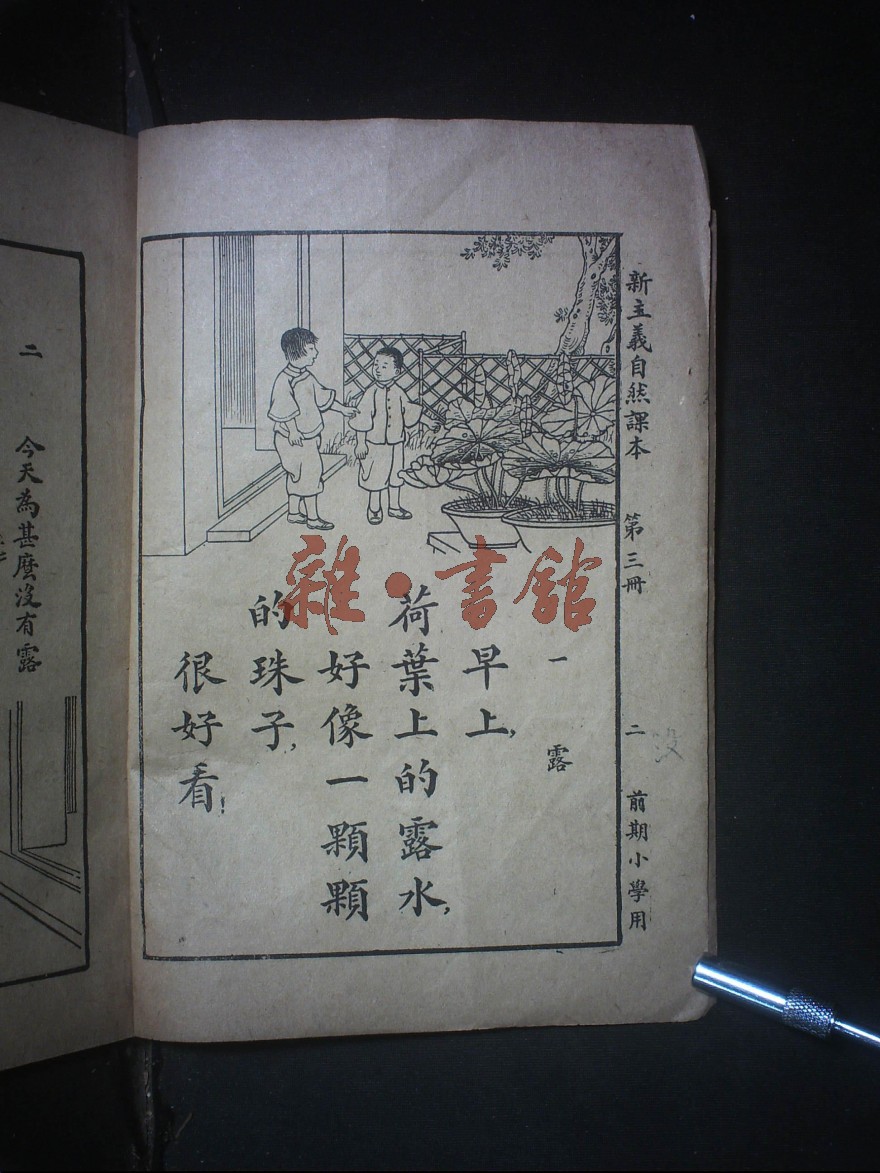 新主義自然課本 第三冊 二 前期小學用
沒
一 露
早上,
荷葉上的露水,
好像一顆顆
的珠子,
很好看!
雜·書館
二 今天為甚麼沒有露